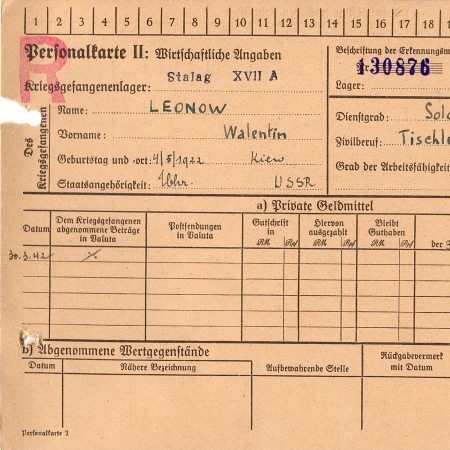 1 2 3 4 5 6 7 8 9 10 11 12 13 14 15 16 17 18
R
Personalkarte II: Wirtschaftliche Angaben
Beschriftung der Erkennungsm
Kriegsgefangenenlager: Stalag XVII A
Nr. 130876
Lager:
Des Kriegsgefangenen
Name: LEONOW
Vorname: Walentin
Geburtstag und -ort: 4/5/1922 Kiew
Staatsangehörigkeit: USSR
Dienstgrad: Sold
Zivilberuf: Tischle
Grad der Arbeitsfähigkeit
a) Private Geldmittel
Datum
Dem Kriegsgefangenen abgenommene Beträge in Valuta
Postsendungen in Valuta
Gutschrift in
RM Rpf
Hiervon ausgezahlt
RM Rpf
Bleibt Guthaben
RM Rpf
der
30.3.42
b) Abgenommene Wertgegenstände
Datum
Nähere Bezeichnung
Aufbewahrende Stelle
Rückgabevermerk mit Datum
Personalkarte 2